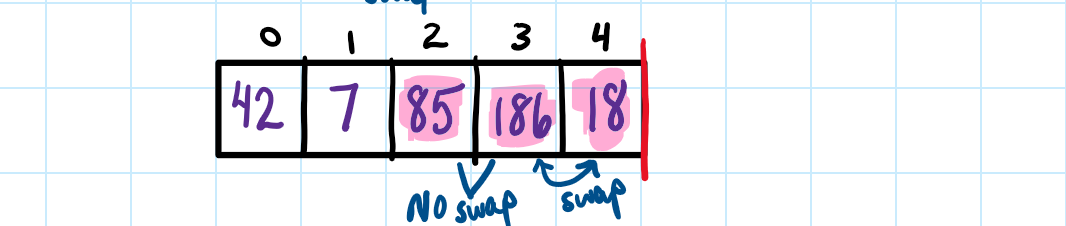 0 1 2 3 4
42 7 85 186 18
NO swap swap